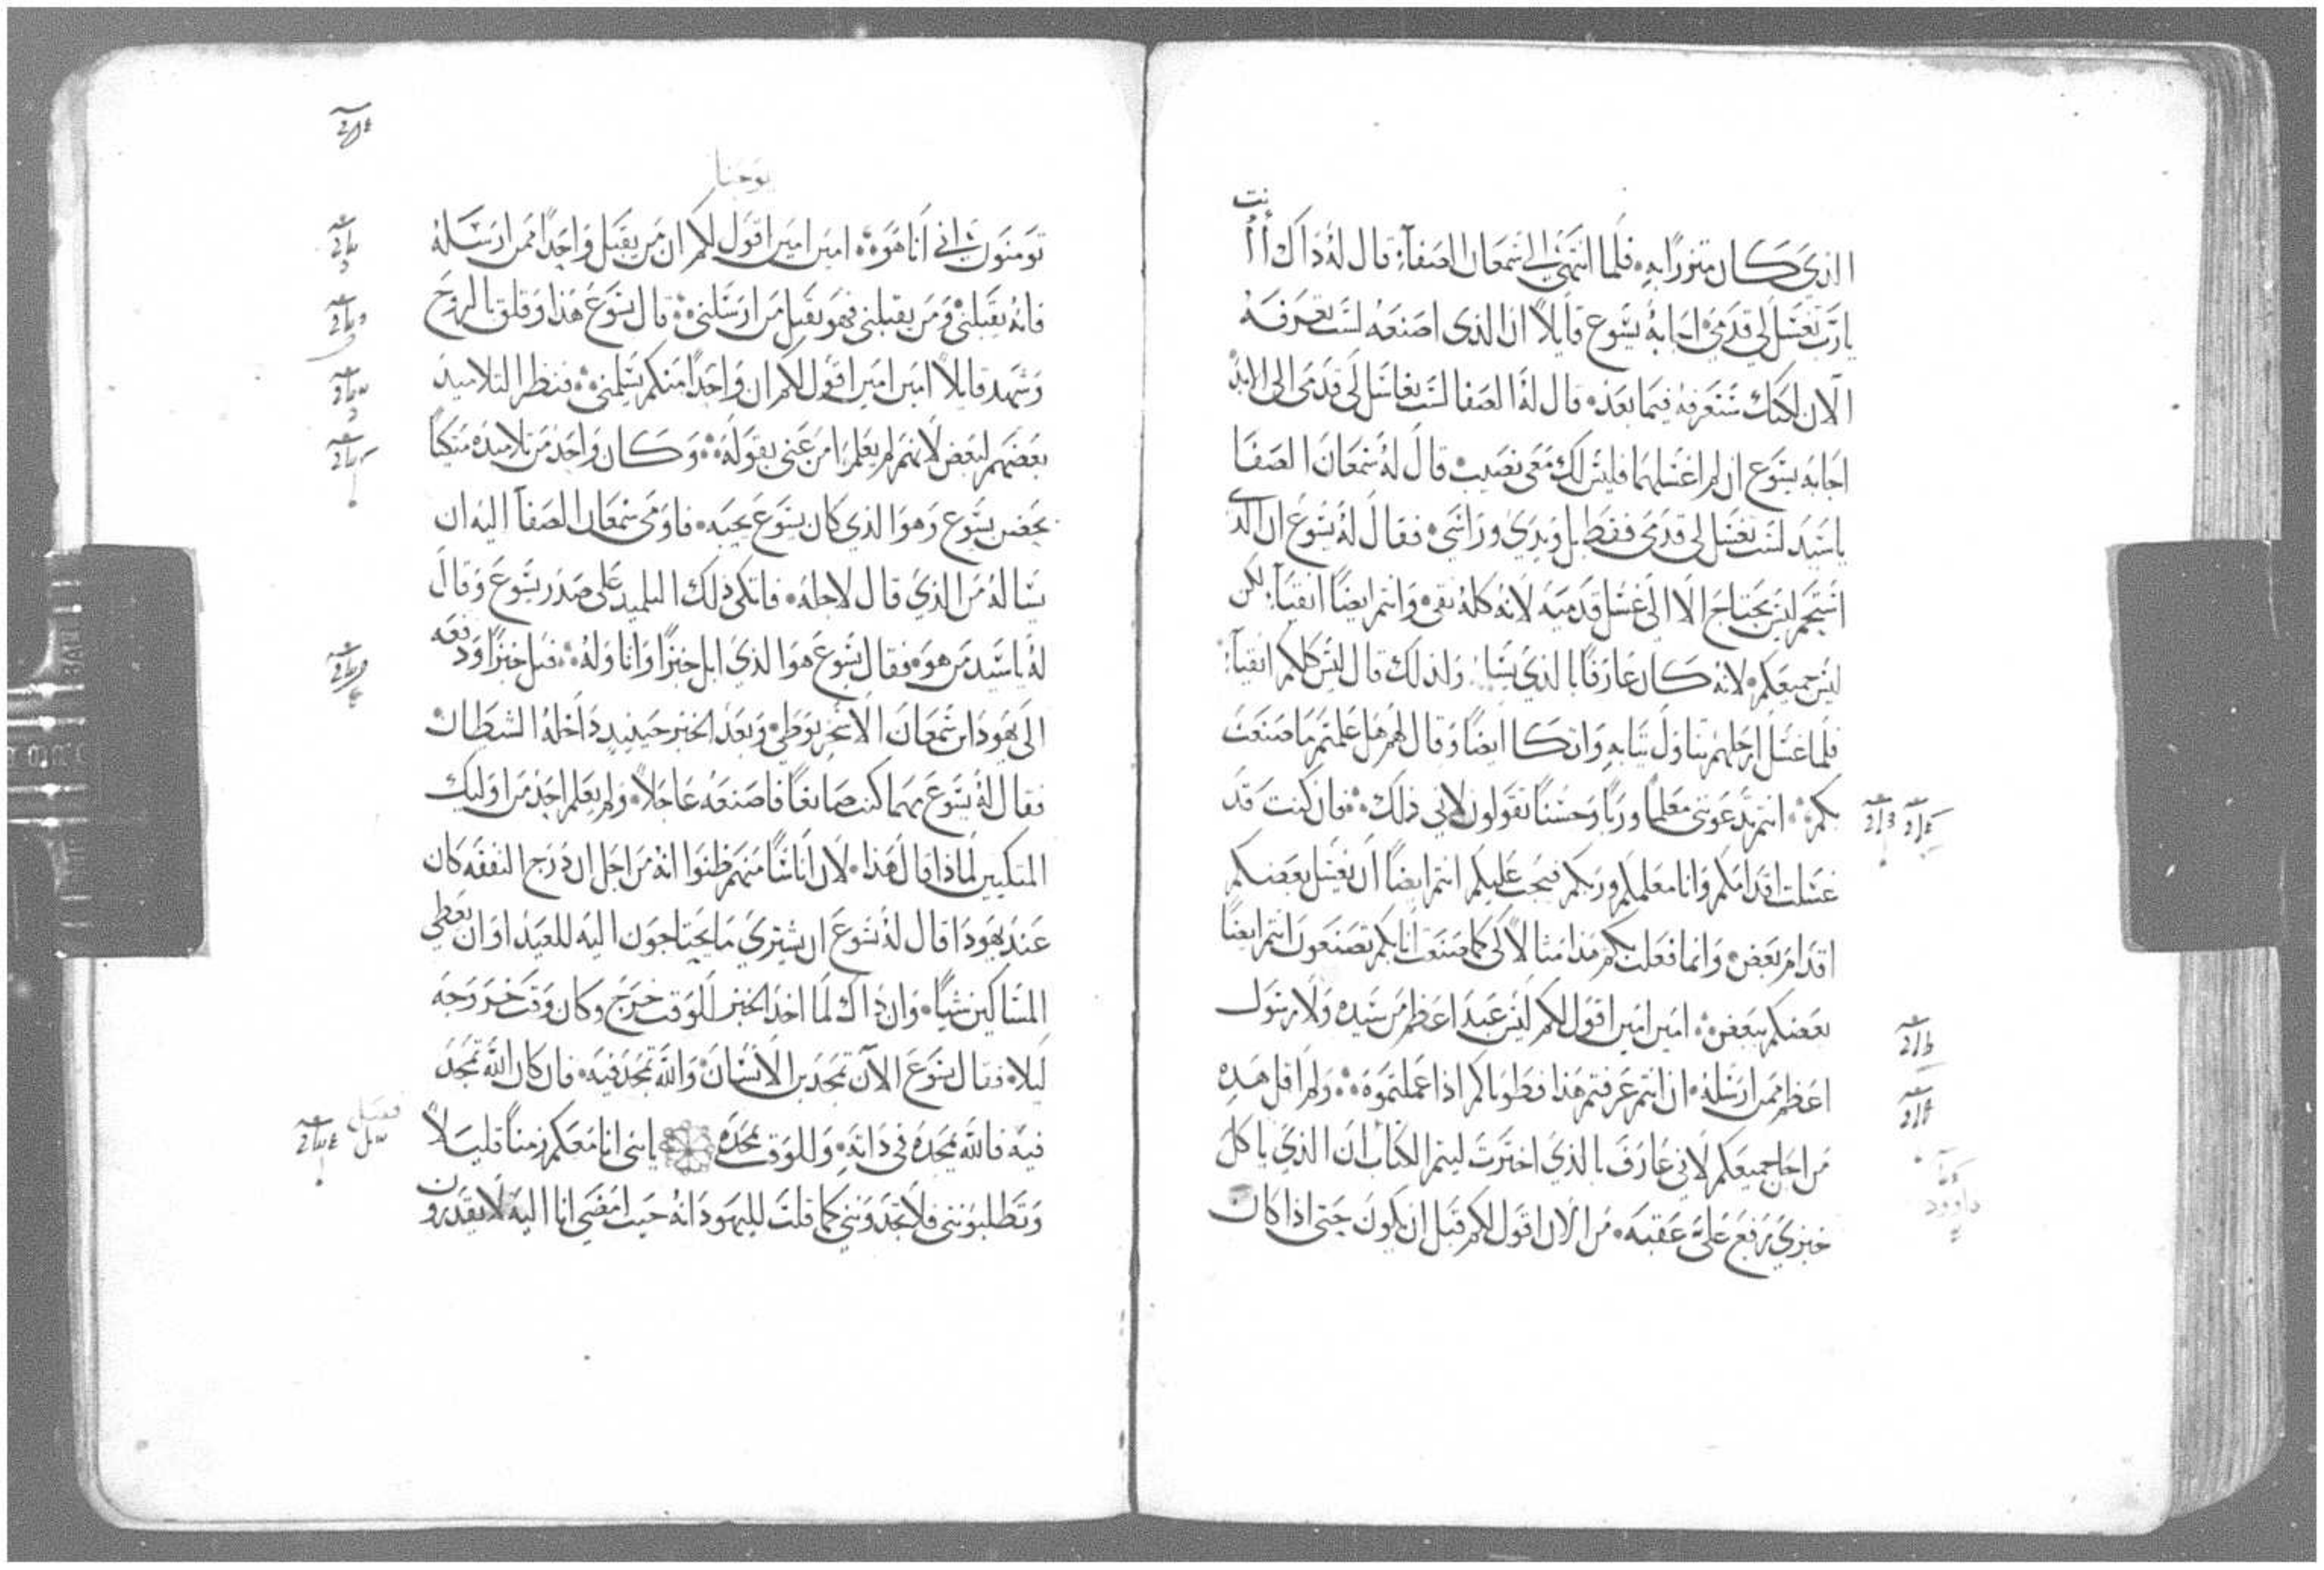 الذي كان متزرا به فلما انتهى الى شمعان الصفا قال له ذاك أأنت
يارب تغسل لي قدمي اجابه يسوع قايلا ان الذي اصنعه لست تعرفه
الان لكنك ستعرفه فيما بعد قال له الصفا لست بغاسل لي قدمي الى الابد
اجابه يسوع ان لم اغسلهما فليس لك معي نصيب قال له شمعان الصفا
ياسيد لست تغسل لي قدمي فقط بل ويدي وراسي فقال له يسوع ان الذي
استحم ليس يحتاج الا الى غسل قدميه لانه كله نقي وانتم ايضا انقيا لكن
ليس جميعكم لانه كان عارفا بالذي ولذلك قال ليس كلكم انقيا
فلما غسل ارجلهم تناول ثيابه واتكا ايضا وقال لهم هل علمتم ما صنعت
بكم انتم تدعونني معلما وربا وحسنا تقولون لاني ذلك فان كنت قد
غسلت اقدامكم وانا معلمكم وربكم فيجب عليكم انتم ايضا ان يغسل بعضكم
اقدام بعض وانما فعلت بكم هذا مثالا لكي كما صنعت انا بكم تصنعون انتم ايضا
بعضكم ببعض امين امين اقول لكم ليس عبد اعظم من سيده ولا رسول
اعظم ممن ارسله ان انتم عرفتم هذا فطوباكم اذا عملتموه ولم اقل هذه
من اجل جميعكم لاني عارف بالذي اخترت ليتم الكتاب ان الذي ياكل
خبزي رفع علي عقبه من الان اقول لكم قبل ان يكون حتى اذا كان
داوود
يوحنا
تومنون اني انا هو امين امين اقول لكم ان من يقبل واحدا ممن ارسله
فانه يقبلني ومن يقبلني فهو يقبل من ارسلني قال يسوع هذا وقلق بالروح
وشهد قايلا امين امين اقول لكم ان واحدا منكم يسلمني فنظر التلاميذ
بعضهم لبعض لانهم لم يعلموا من عنى بقوله وكان واحد من تلاميذه متكيا
بحضن يسوع وهو الذي كان يسوع يحبه فاومى شمعان الصفا اليه ان
يساله من الذي قال لاجله فاتكى ذلك التلميذ على صدر يسوع وقال
له ياسيد من هو فقال يسوع هو الذي ابل خبزا واناوله فبل خبزا ودفعه
الى يهودا ابن شمعان الاسخريوطي وبعد الخبز حينيذ داخله الشيطان
فقال له يسوع مهما كنت صانعا فاصنعه عاجلا ولم يعلم احد من اوليك
المتكيين لماذا قال هذا لان اناسا منهم ظنوا انه من اجل ان درج النفقه كان
عند يهودا قال له يسوع ان يشتري ما يحتاجون اليه للعيد او ان يعطي
المساكين شيا وان ذاك لما اخذ الخبز للوقت خرج وكان وقت خروجه
ليلا فقال يسوع الان تمجد بن الانسان والله تمجد فيه فان كان الله تمجد
فيه فالله يمجده في ذاته وللوقت يمجده يابني انا معكم زمنا قليلا
وتطلبونني فلا تجدونني كما قلت لليهود انه حيث امضي انا اليه لا يقدرون
فصل